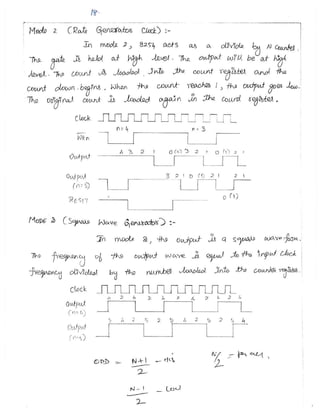 18.
Mode 2 (Rate Generator Clock) :-
In mode 2, 8254 acts as a divide by N counter.
The gate is held at high level. The output will be at high
level. The count is loaded into the count register and the
count down begins. When the count reaches 1, the output goes low.
The original count is loaded again in the count register.
Clock
n=4 n=3
Wen
Output
4 3 2 1
Output
(n=3)
RESET
Mode 3 (Square Wave Generator) :-
In mode 3, the output is a square wave form.
The frequency of the output wave is equal to the input clock
frequency divided by the number loaded into the counter register.
Clock
Output
Output
(n=5)
ODD = N+1 / 2 - His N/2
N-1 / 2 - Low